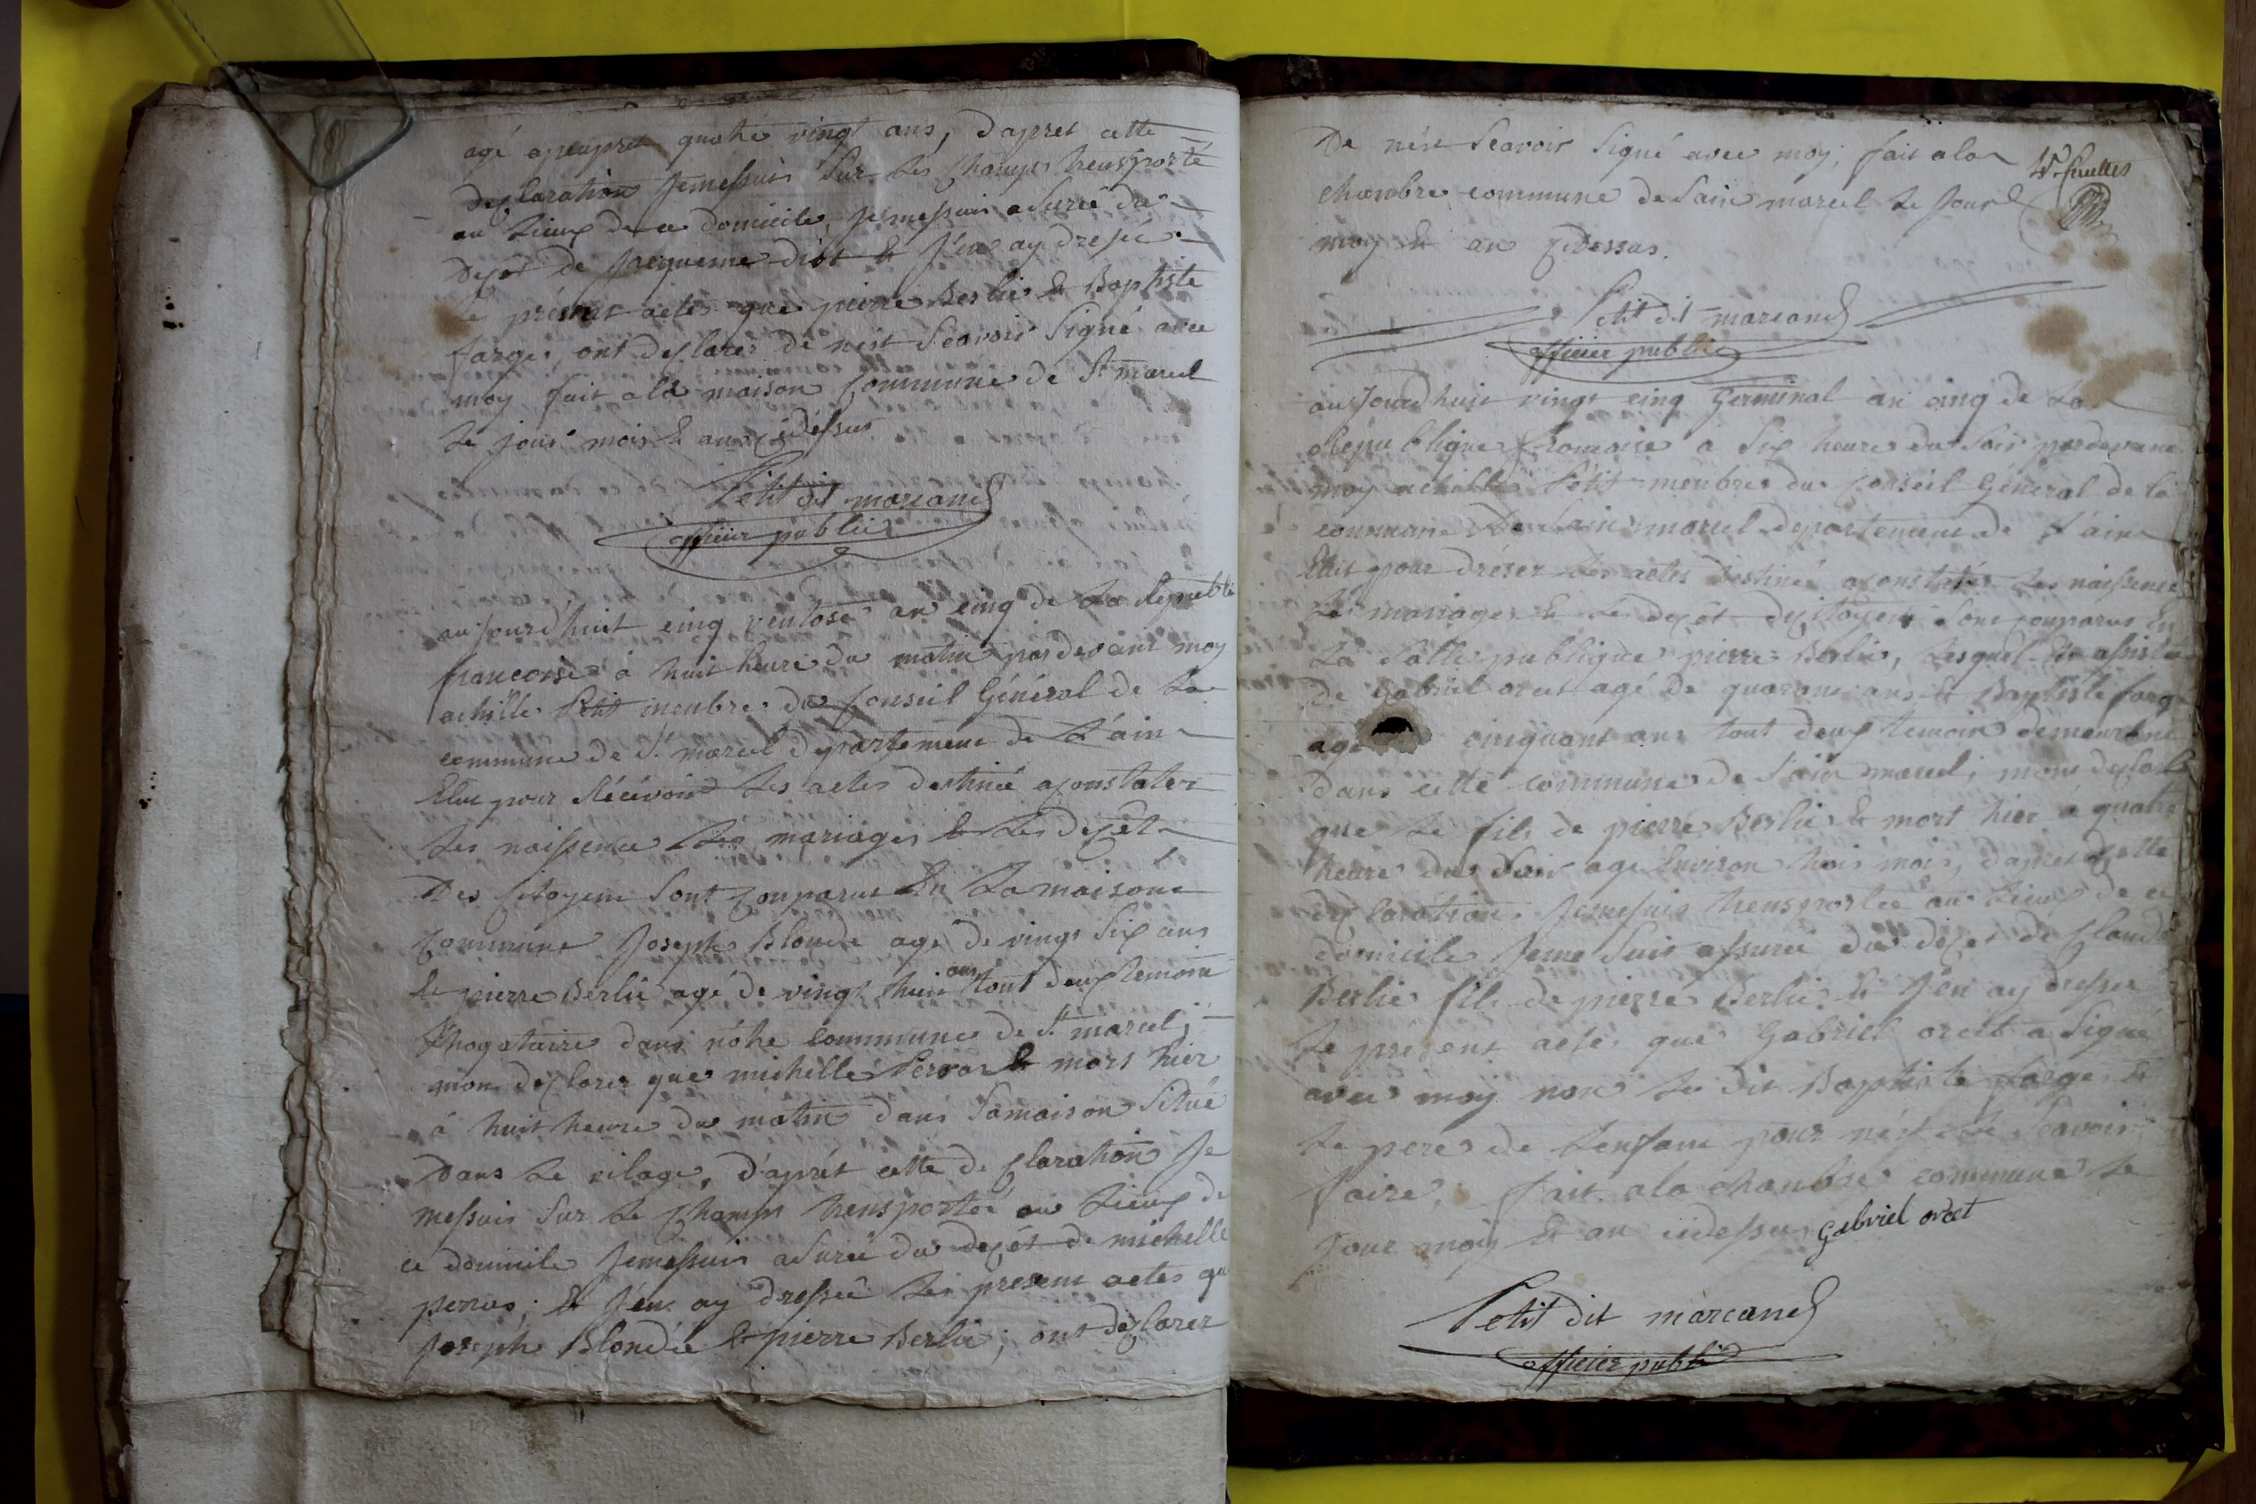 agé apeupret quatre vingt ans, dapret cette
declaration Jemessuis Sur les Champs transporté
au Lieux de ce domicile, Jemessuis asurée du
decét de Jacqueme diot et J'en ay dresée
le présent actes que pierre Berlie et Baptiste
farge, ont declarer de n'est Scavoir Signé avec
moy fait ala maison Commune de St marcel
le jour mois et an cydessus
Petit dit marcand
officier public
aujourd'huit cinq ventose an cinq de La Republi
francoise à huit heure du matin pardevant moy
achille Petit menbre du Conseil Général de La
commune de St marcel departement de L'ain
Elue pour Récévoir Les actes destinée aconstater
Les naissence Les mariages et Les decét
Des Citoyens Sont Conparus En La maisone
Commune Joseph Blonde age de vingt Six ans
et pierre Berlie agé de vingt huit ans tout deux temoin
dans nôtre commune de St marcel;
mon declarer que michelle Perra et mort hier
à huit heure du matin dans Samaison Situé
Dans Le vilage, d'aprét cette declaration Je
messuis Sur Le Champs transportée au Lieux de
ce domicile Jemessuis asurée du decét de michelle
perras; et J'en ay dressée Les present actes que
Joseph Blondée et pierre Berlie; ont declarer
De nést Scavoir Signé avec moy; fait ala
chambre commune de Sain marcel Le Jour
moy et an Cidessus.
Petit dit marcand
officier public
aujourdhuit vingt cinq Germinal an cinq de La
Republique francoise à Six heure du Soir pardevant
moy achille Petit menbre du Conseil Général de la
commune de Sain marcel departement de L'ain
Elut pour dréser Les actes destinée aconstater Les naissence
Les mariages et Les decét des Citoyens Sont conparus En
La Salle publique pierre Berlie, Lesquel Est assistée
de Gabriel orcet agé de quarant ans et Baptiste farge
agé cinquant ans tout deux temoin demeurant
dans cette commune de Sain marcel; mont declare
que Le fils de pierre Berlie et mort hier à quatre
heure du Soir age Environ trois mois, dapret cette
declaration Jemessuis transportée au Lieux de ce
domicile Jeme Suis assurée du decét de Claude
Berlie fils de pierre Berlie et J'en ay dresser
Le présent actes que Gabriel orcet a Signé
avec moy non Le dit Baptiste farge et
Le pere de Lenfant pour nést Le Scavoir
faire; fait ala chambre commune Le
Jour moy et an cidessus Gabriel orcet
Petit dit marcand
officier public